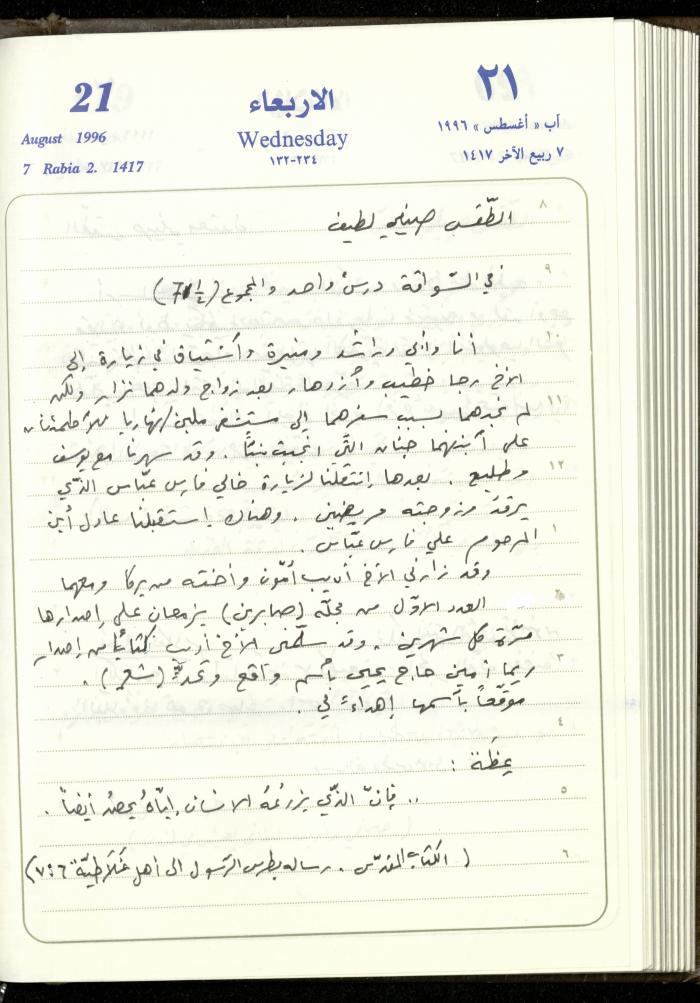 21
August 1996
7 Rabia 2. 1417
الاربعاء
Wednesday
١٣٢-٢٣٤
٢١
آب « أغسطس » ١٩٩٦
٧ ربيع الآخر ١٤١٧
٨
الطّقس صيفي لطيف
٩
في السّواقة درسٌ واحد والمجموع (
١٠
أنا وأبي وراشد ومنيرة وأشتياق في زيارة إلى
الأخ رجا خطيب وأزرهار بعد زواج ولدهما نزار ولكن
١١
لم نجدهما بسبب سفرهما إلى مستشفى /نهاريا للأطمئنان
على أبنتهما حنان التّي انجبت بنتاً. وقد سهرنا مع يوسف
١٢
وطليع. بعدها إنتقلنا لزيارة خالي فارس عبّاس الذّي
يرقد وزوجته مريضين. وهناك إستقبلنا عادل أبن
١
المرحوم علي فارس عبّاس.
وقد زارني الأخ أديب وأخته من يركا ومعهما
٢
العدد الاوّل من مجلّة (صابرين) يزمعان على إصدارها
مرّة كل شهرين. وقد سلّمني الأخ أديب كتاباً من إصدار
٣
ريما أمين حاج يحيى بأسم واقع وتحدٍّ (شعر).
موقّعاً بأسمها إهداءً لي.
٤
عِظَة :
٥
.. فإنّ الذّي يزرعُهُ الانسان إيّاهُ يحصدُ أيضاً.
٦
( الكتاب المقدّس. رسالة بطرس الرّسول الى أهل غَلاَطِيّة ٧:٦)